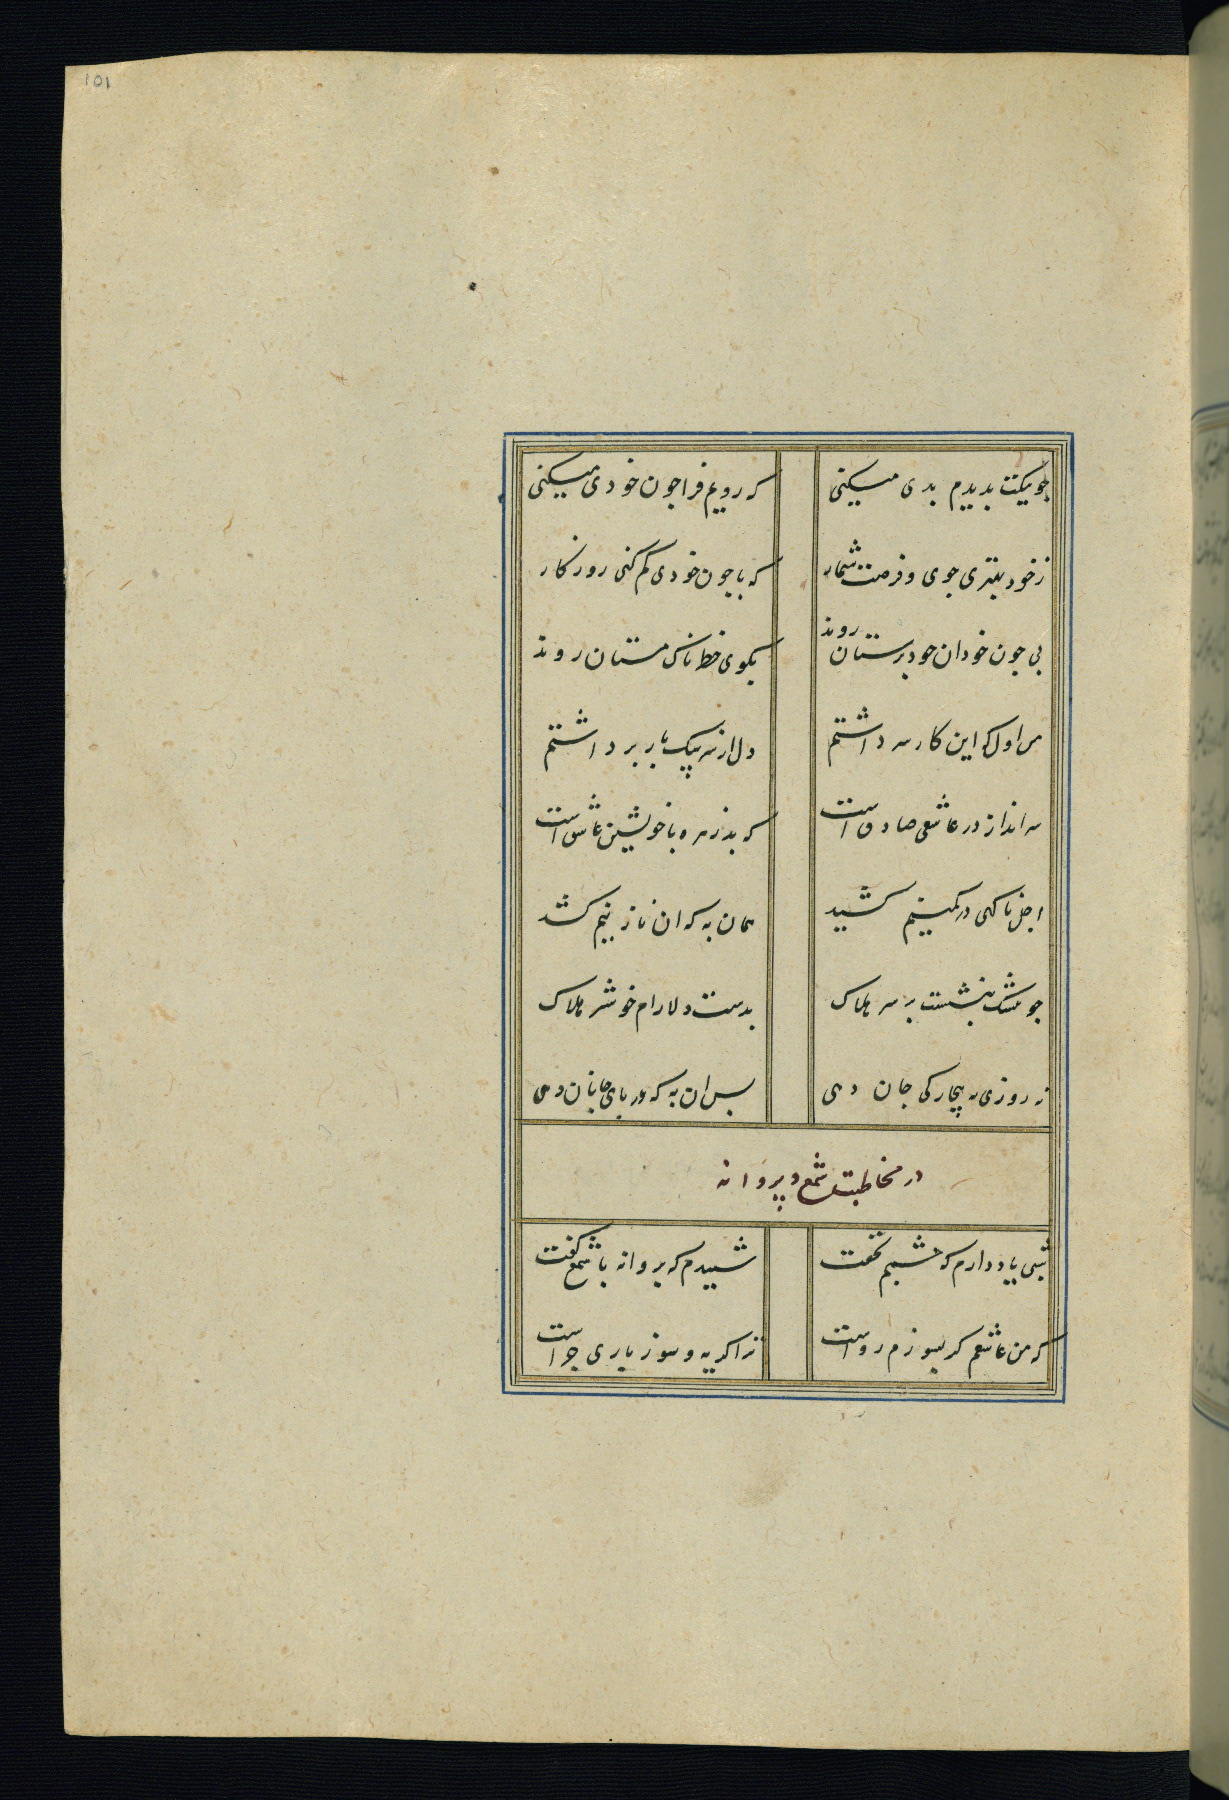 101
چو نیکت بدیدم بدی میکنی که رویم فراچون خودی میکنی
ز خود بهتری جوی و فرصت شمار که با چون خودی کم کنی روزکار
پی چون خودان خود پرستان روند بکوی خطرناک مستان روند
من اول که این کار سر داشتم دل از سر بیک بار برداشتم
سر انداز در عاشقی صادق است که بد زهره با خویشتن عاشق است
اجل ناکهی در کمینم کشید همان به که ان نازنینم کشد
چو بیشک نبشتست بر سر هلاک بدست دلارام خوشتر هلاک
نه روزی به بیچارکی جان دهی بس ان به که در بای جانان دهی
در مخاطبت شمع و پروانه
شبی یاد دارم که چشمم نخفت شنیدم که پروانه با شمع کفت
که من عاشقم کر بسوزم رواست ترا کریه و سوز باری چراست